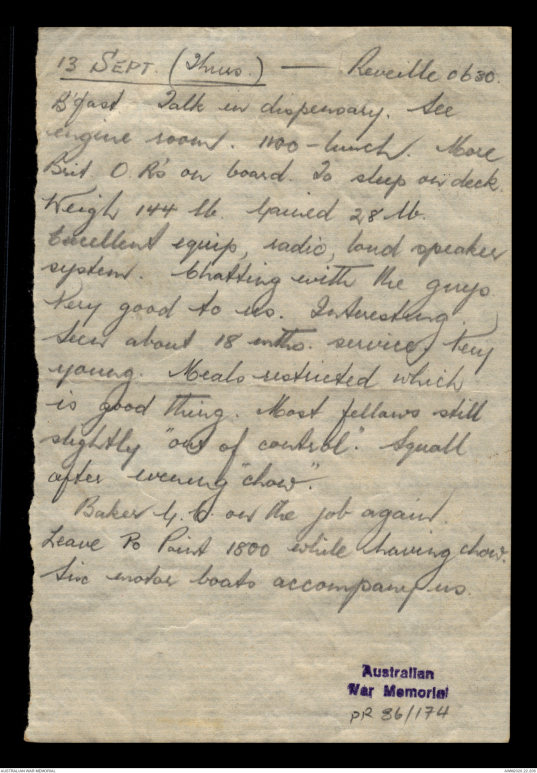 13 SEPT. (Thurs.) — Reveille 0630.
B'fast Talk in dispensary. See
engine room. 1100 - lunch. More
Brit. O.R's on board. To sleep on deck.
Weigh 144 lb. Gained 28 lb.
Excellent equip, radio, loud speaker
system. Chatting with the guys
Very good to us. Interesting.
Seen about 18 mths. service. Very
young. Meals restricted which
is good thing. Most fellows still
slightly "out of control". Squall
after evening "chow".
Baker on the job again.
Leave Po Point 1800 while having chow.
Six motor boats accompany us.
Australian
War Memorial
PR 86/174
AUSTRALIAN WAR MEMORIAL